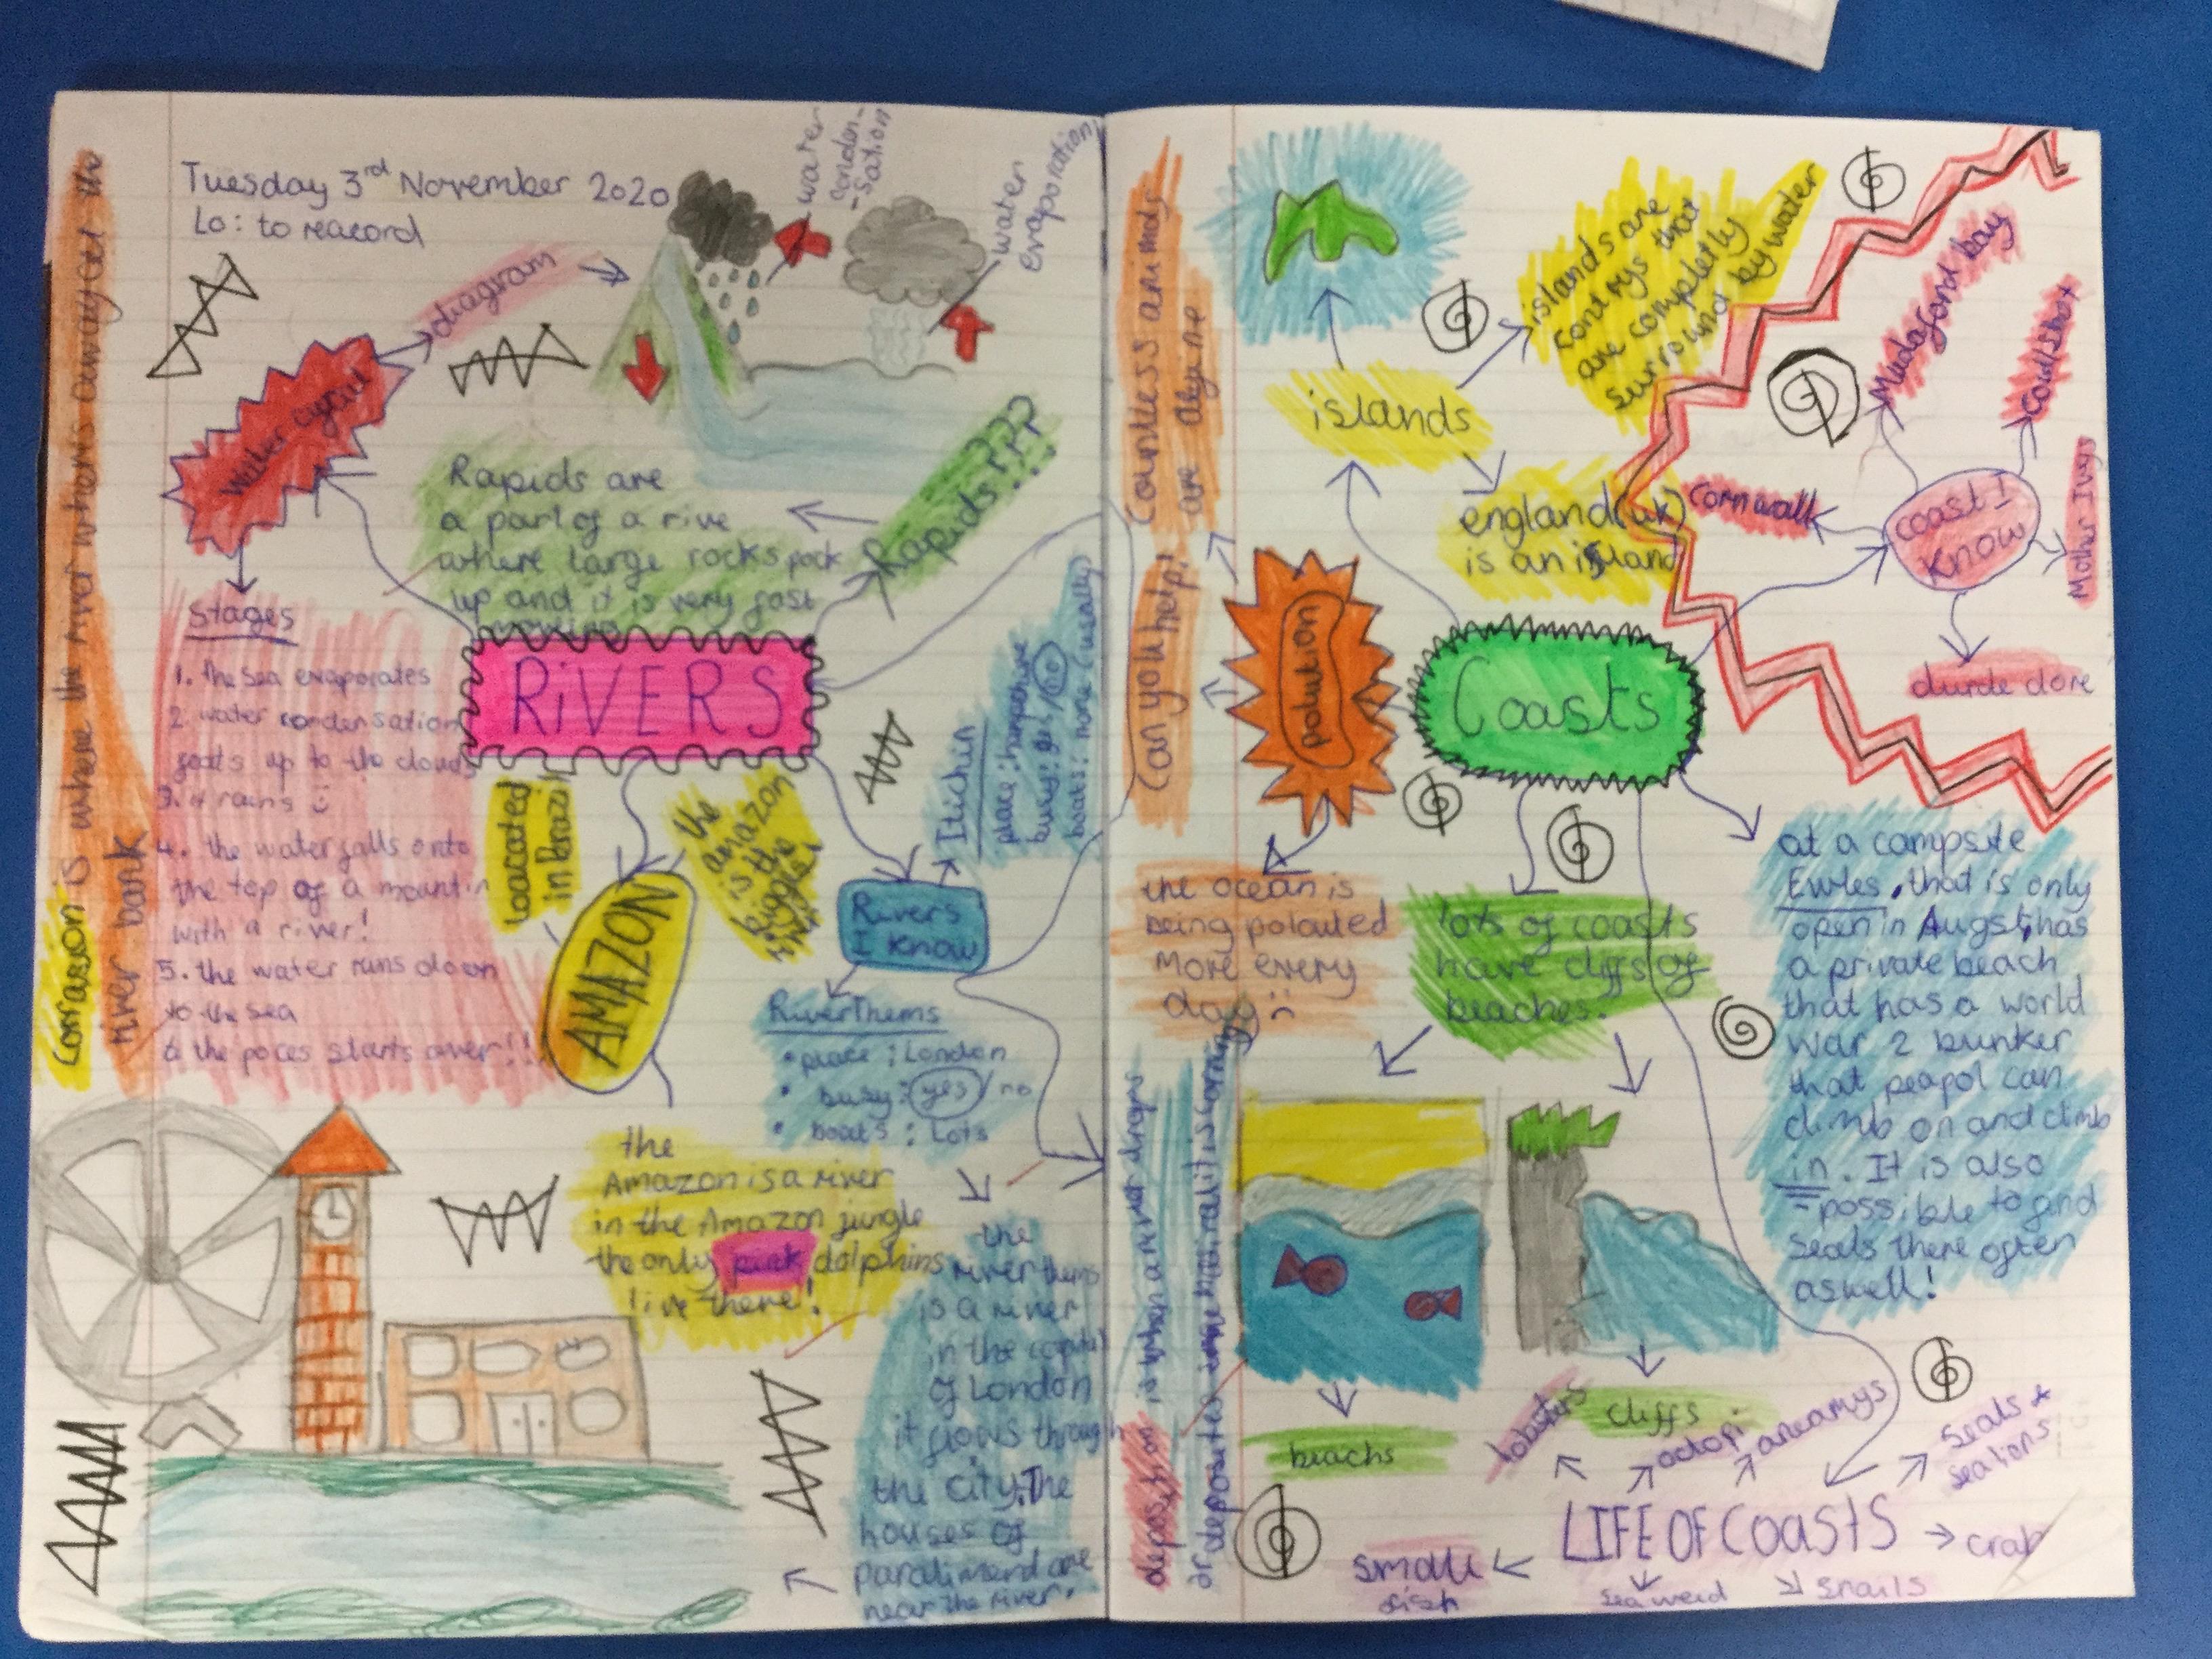 Tuesday 3rd November 2020
Lo: to reacord
diagram
water
conden-
-sation
water
evaporation
water cycul
Rapids???
Rapids are
a part of a rive
where large rocks pock
up and it is very fast
moveing
Stages
1. the sea evaporates
2 water condensation
goats up to the clouds
3. it rains
4. the water falls onto
the top of a mountin
with a river!
5. the water runs down
to the sea
& the poces starts over!!
RiVERS
corrasion is where the river where's away at the
river bank
loacated
in Brazil
the
amazon
is the
AMAZON
the
Amazon is a river
in the Amazon jungle
the only pink dolphins
live there!
Rivers
I know
Itichin
place: hampshire
busy: yes/no
boats: none (usually)
River Thems
• place: London
• busy: yes/no
• boats: Lots
the
river thems
is a river
in the capital
of London
it flows through
the city. The
houses of
paraliment are
near the river.
countless animals
are dying
can you help!
polaution
the ocean is
being polauted
more every
day
islands
islands are
contrys that
are completly
surround by water
england (uk)
is an island
Coasts
coast I
know
Mudaford bay
Coulshot
cornwall
Mother Ivys
durde dore
lots of coasts
have cliffs of
beaches.
beachs
cliffs
at a campsite
Ewles, that is only
open in Augst, has
a private beach
that has a world
war 2 bunker
that peapol can
climb on and climb
in. It is also
possible to find
seals there often
aswell!
deposition is when a river drops
or deposites
LIFE OF COASTS
lobsters
octopi
aneamys
seals +
sea lions
crab
snails
sea weed
small
fish